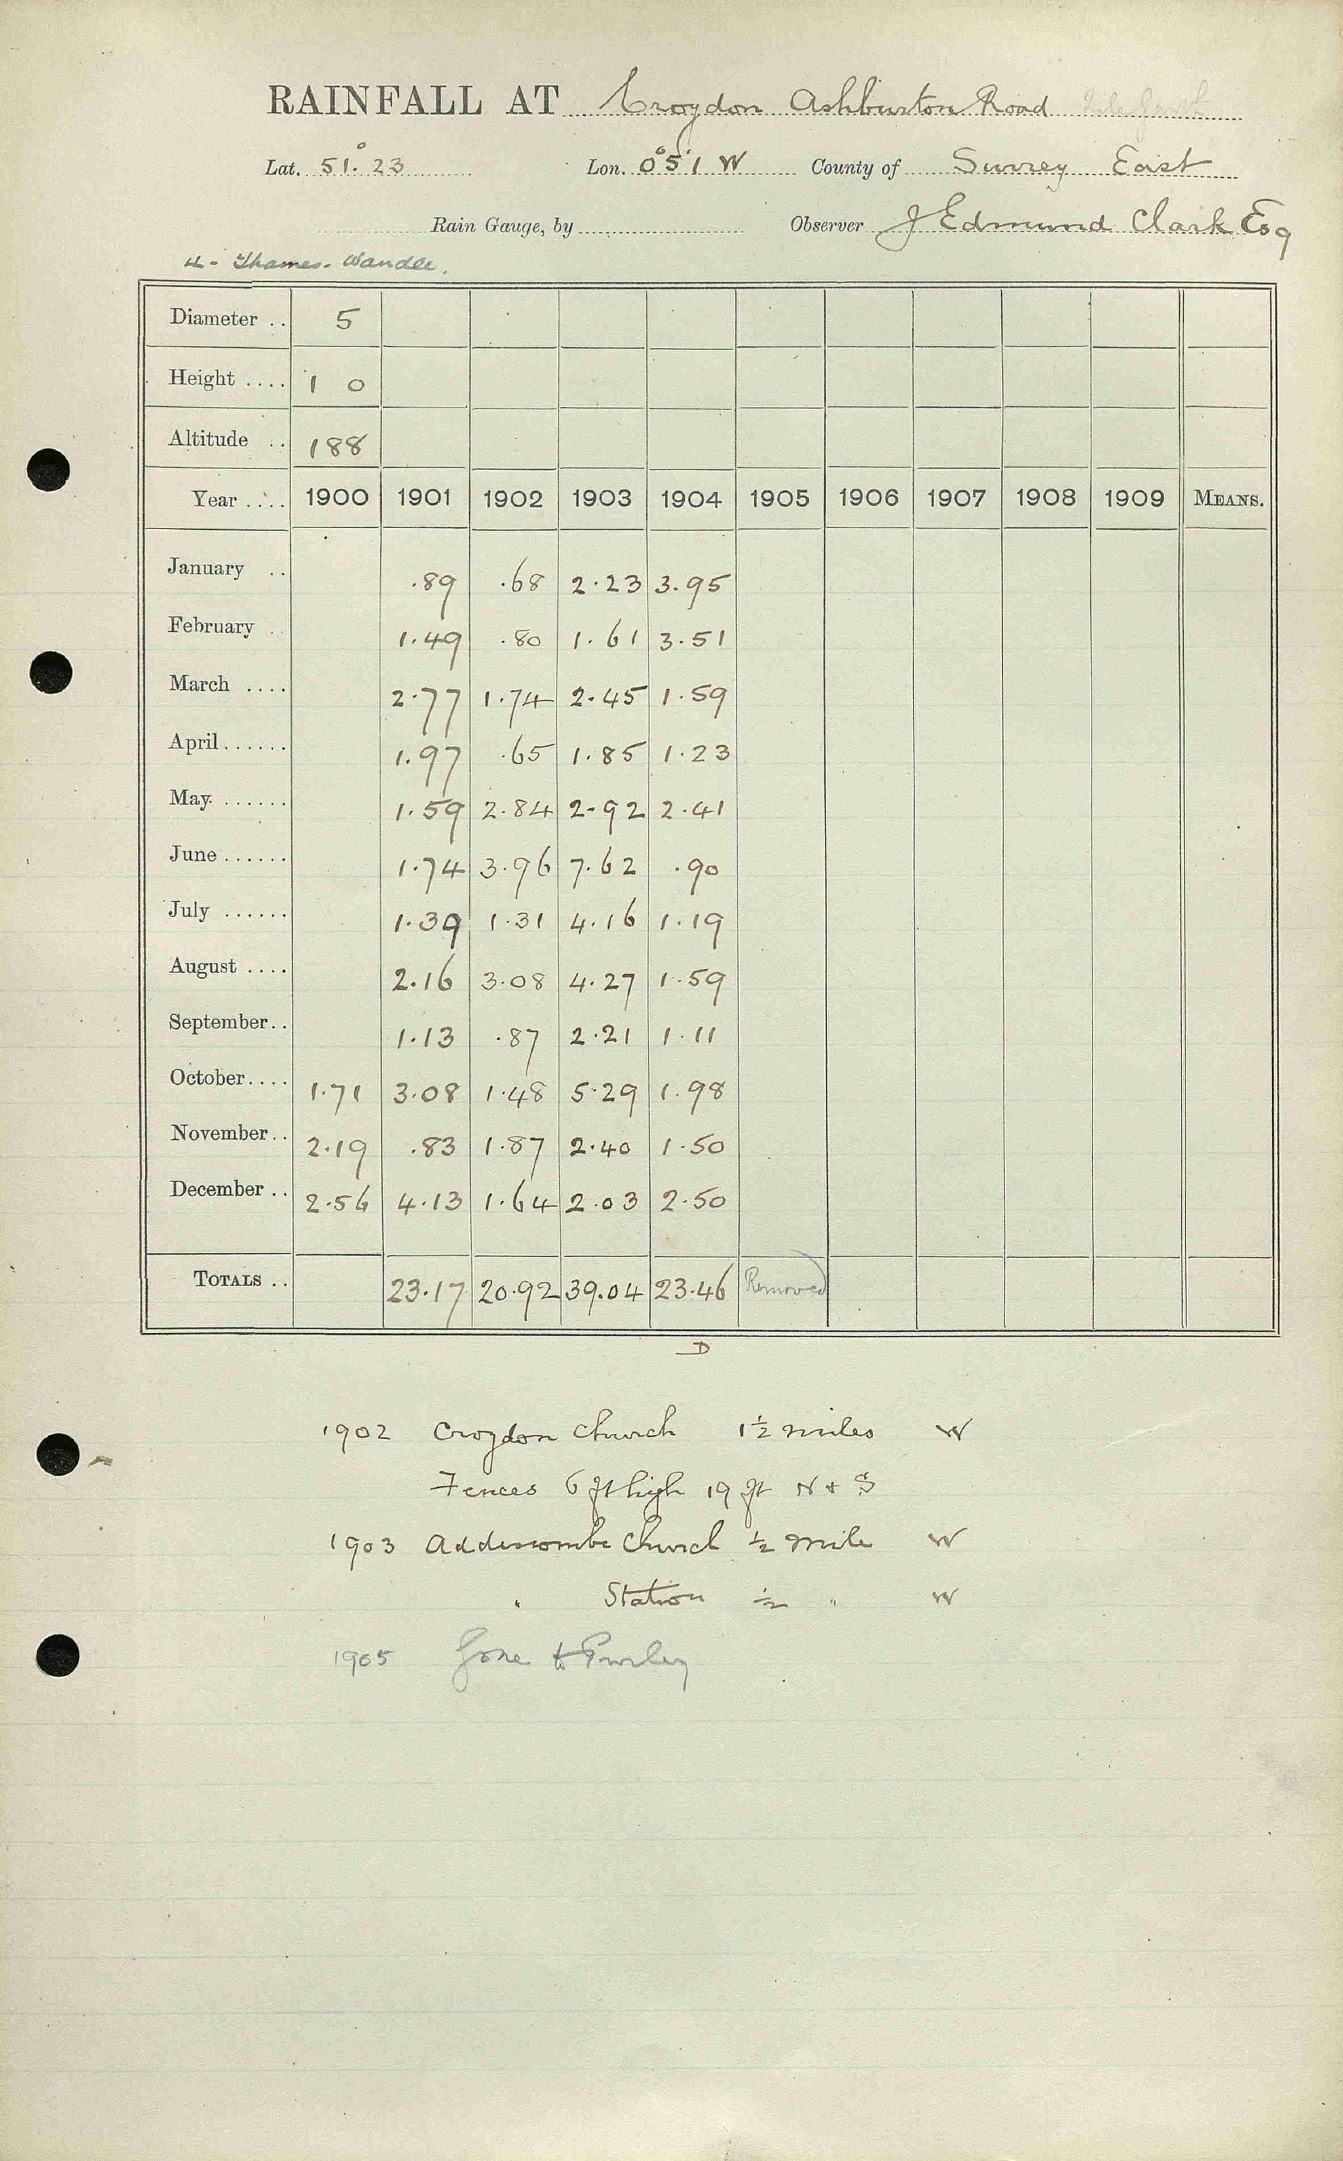 RAINFALL AT Croydon Ashburton Road
Lat. 51°. 23 Lon. 0° 5' 1 W County of Surrey East
Rain Gauge, by Observer J Edmund Clark Esq
4 - Thames - Wandle.
Diameter .. 5
Height .... 1 0
Altitude .. 188
Year .... 1900 1901 1902 1903 1904 1905 1906 1907 1908 1909 MEANS.
January .. .89 .68 2.23 3.95
February .. 1.49 .80 1.61 3.51
March .... 2.77 1.74 2.45 1.59
April...... 1.97 .65 1.85 1.23
May. ...... 1.59 2.84 2.92 2.41
June ...... 1.74 3.96 7.62 .90
July ...... 1.39 1.31 4.16 1.19
August .... 2.16 3.08 4.27 1.59
September.. 1.13 .87 2.21 1.11
October.... 1.71 3.08 1.48 5.29 1.98
November.. 2.19 .83 1.87 2.40 1.50
December .. 2.56 4.13 1.64 2.03 2.50
TOTALS .. 23.17 20.92 39.04 23.46 Removed
D
1902 Croydon Church 1½ miles W
Fences 6 ft high 19 ft N + S
1903 Addiscombe Church ½ mile W
" Station ½ " W
1905 Gone to Purley